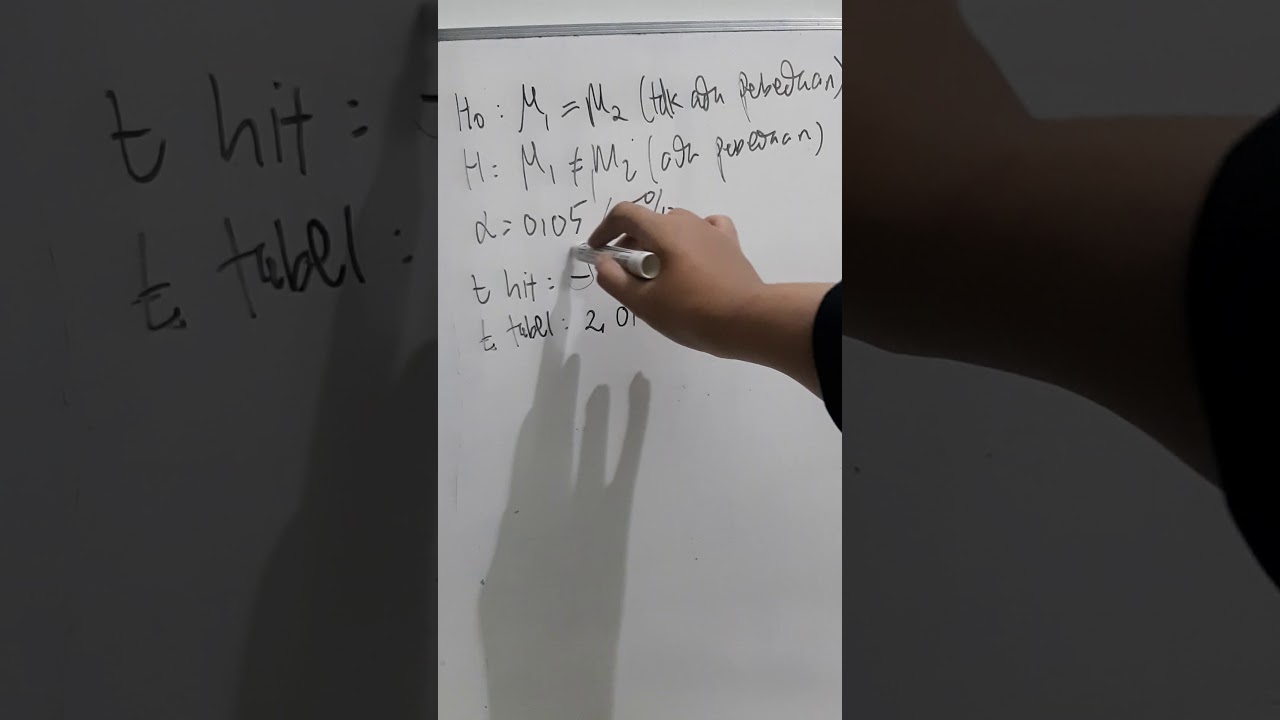 H₀: μ₁ = μ₂ (tdk ada perbedaan)
H: μ₁ ≠ μ₂ (ada perbedaan)
α = 0,05
t hit: -
t tabel: 2,01
t hit:
t tabel: